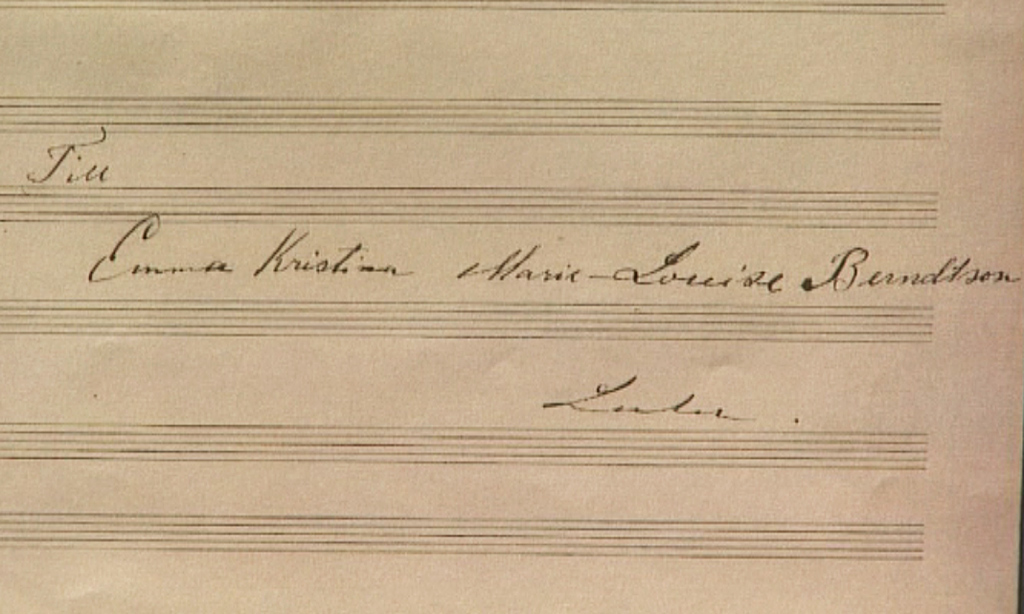 Till
Emma Kristina Marie-Louise Berndtson